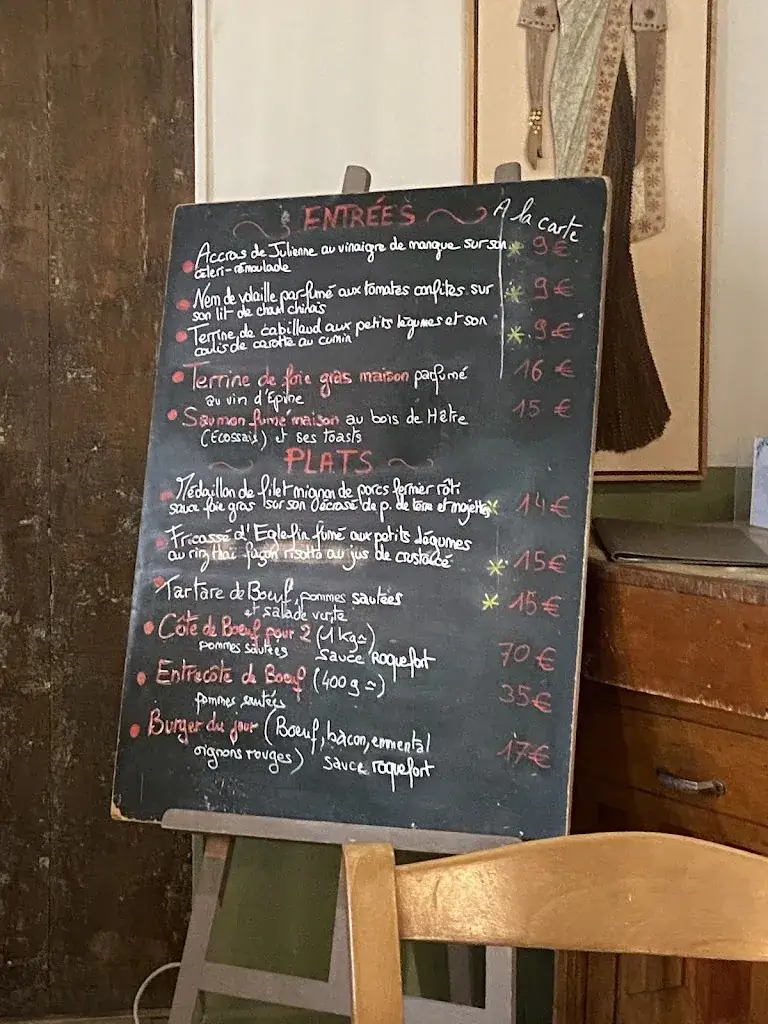 ENTRÉES
A la carte
Accras de Julienne au vinaigre de mangue sur son * 9€
céleri-rémoulade
Nem de volaille parfumé aux tomates confites sur * 9€
son lit de choux chinois
Terrine de cabillaud aux petits légumes et son * 9€
coulis de carotte au cumin
Terrine de foie gras maison parfumé 16 €
au vin d'Epine
Saumon fumé maison au bois de Hêtre 15 €
(Ecossais) et ses toasts
PLATS
Médaillon de filet mignon de porcs fermier rôti
sauce foie gras sur son écrasé de p. de terre et mojettes * 14€
Fricassé d'Eglefin fumé aux petits légumes
au riz thaï façon risotto au jus de crustacé * 15€
Tartare de Boeuf, pommes sautées * 15€
et salade verte
Côte de Boeuf pour 2 (1 kg≃) 70 €
pommes sautées sauce roquefort
Entrecôte de Boeuf (400 g ≃) 35€
pommes sautées
Burger du jour (Boeuf, bacon, emmental 17€
oignons rouges) sauce roquefort